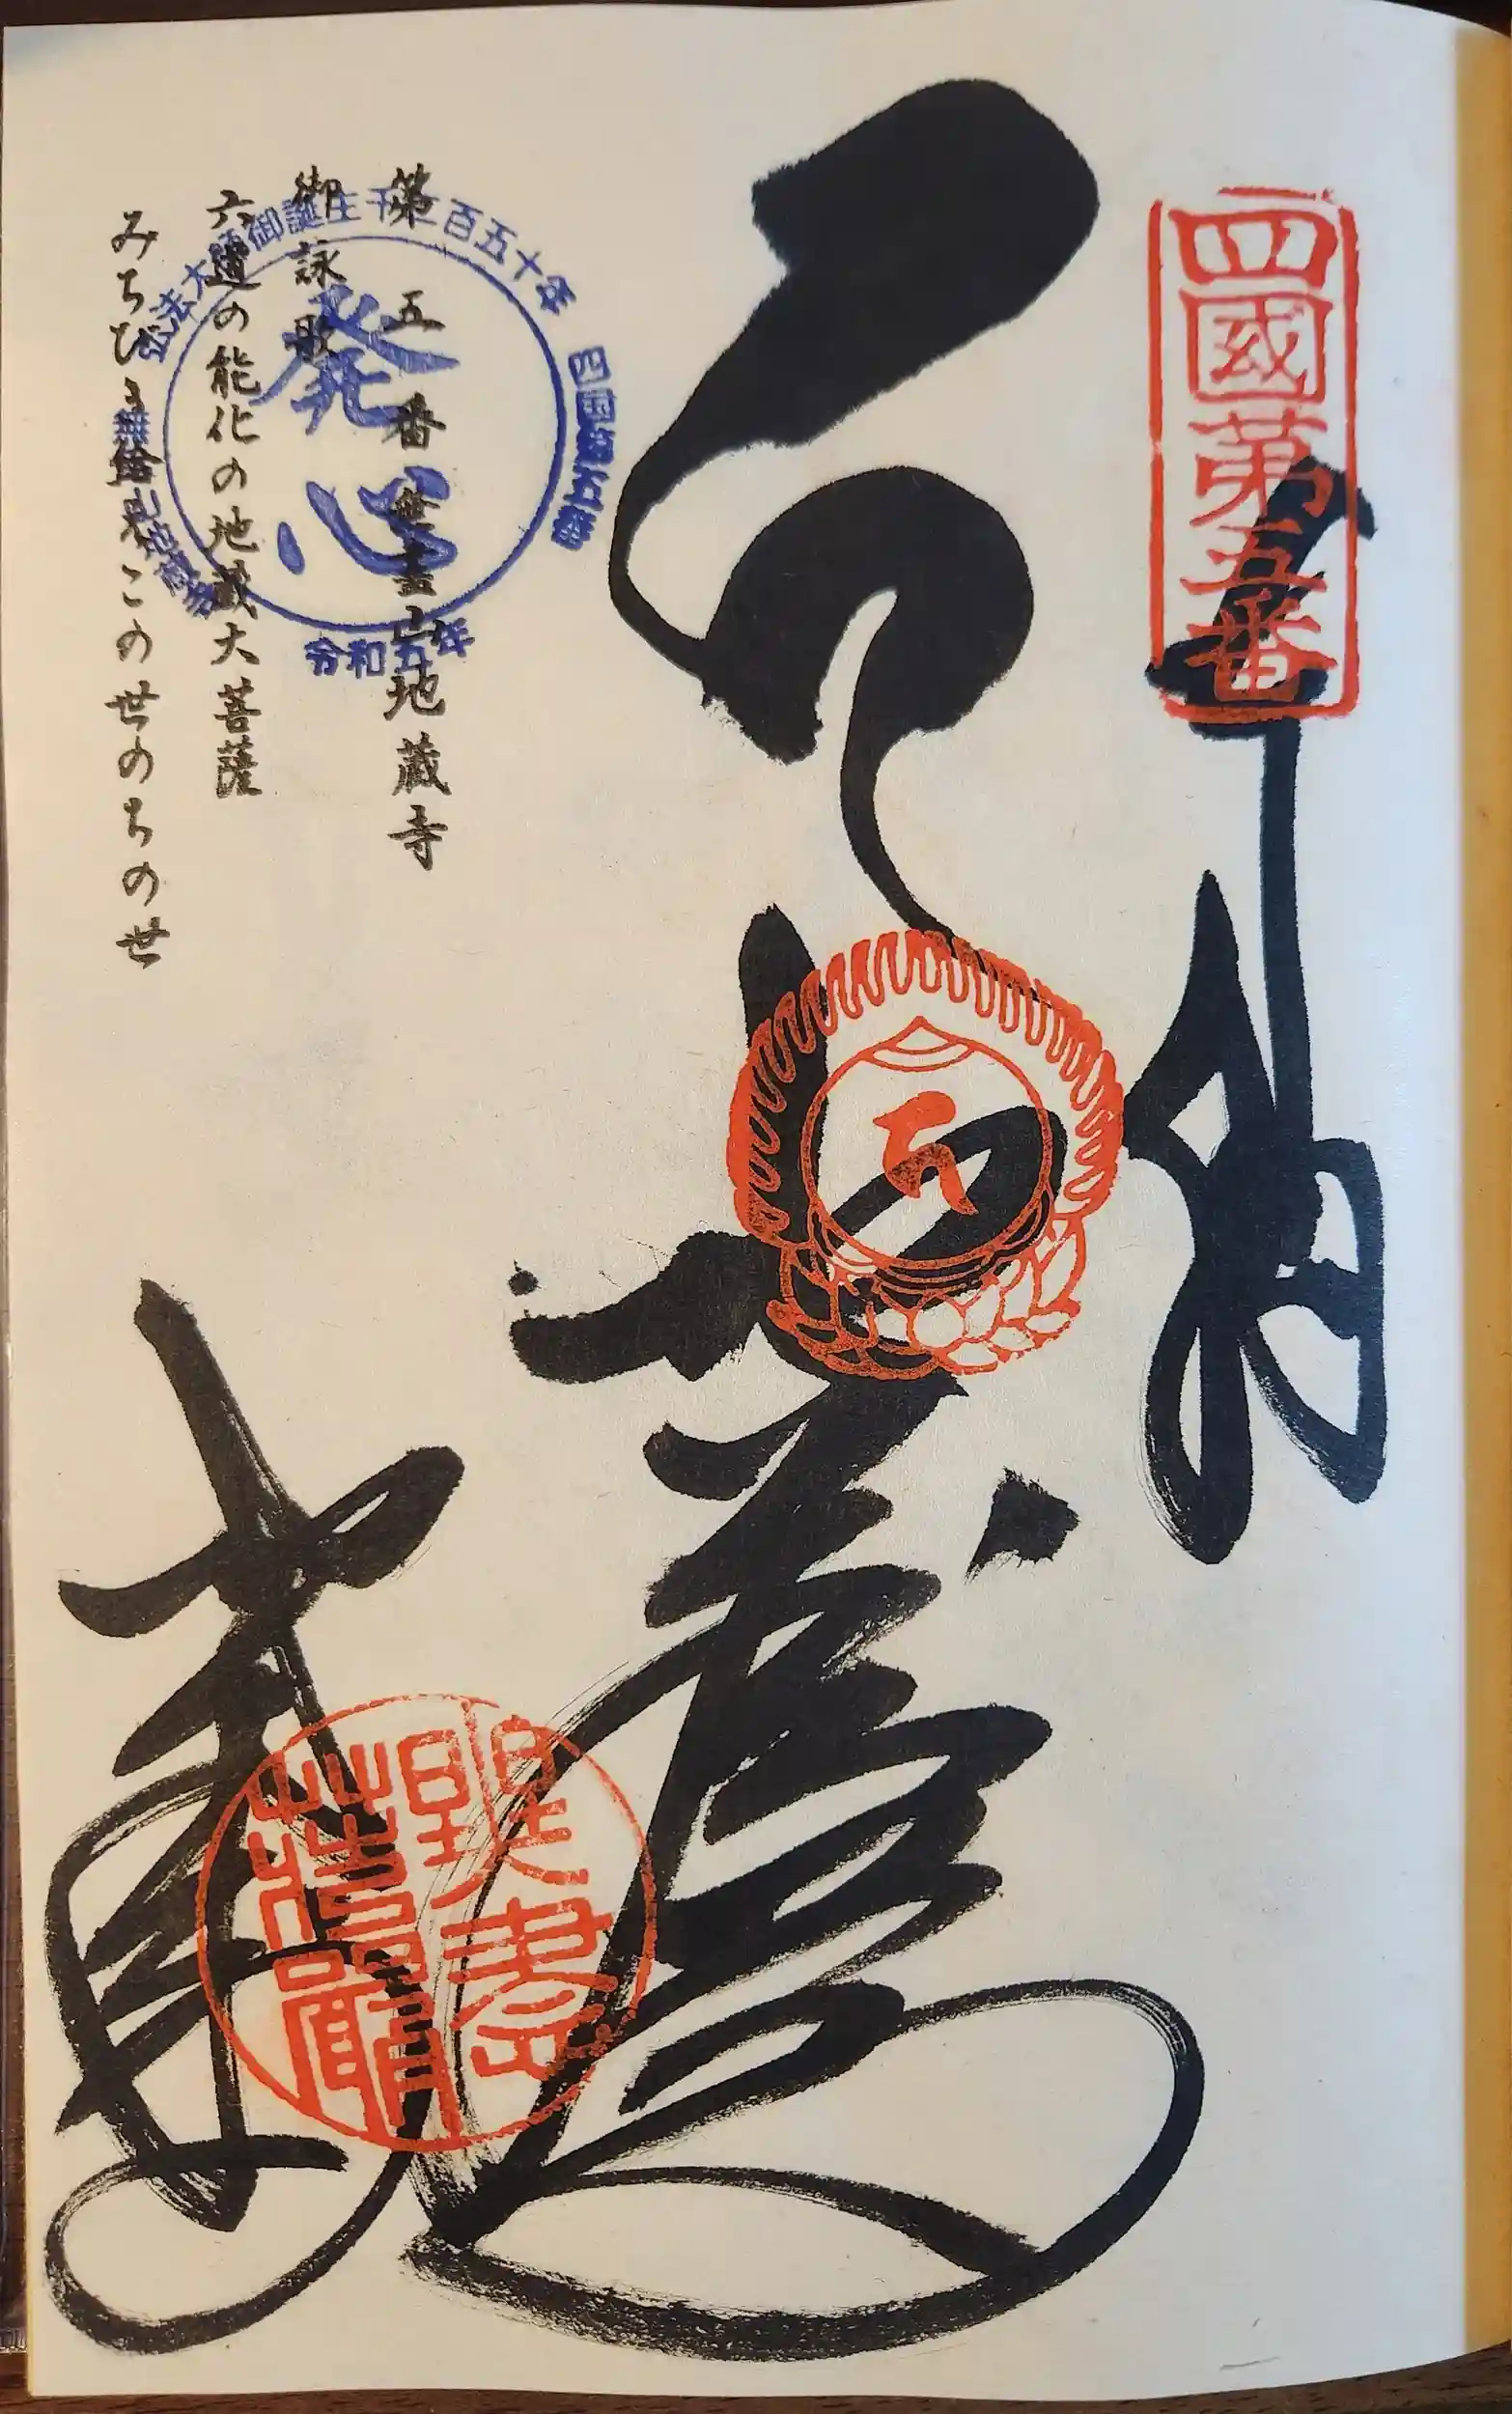 四國第五番
奉納
地蔵
第五番無尽山地蔵寺
御詠歌
六道の能化の地蔵大菩薩
みちびき給えこの世のちの世
弘法大師御誕生千二百五十年
四国第五番
無尽山地蔵寺
令和五年
発心